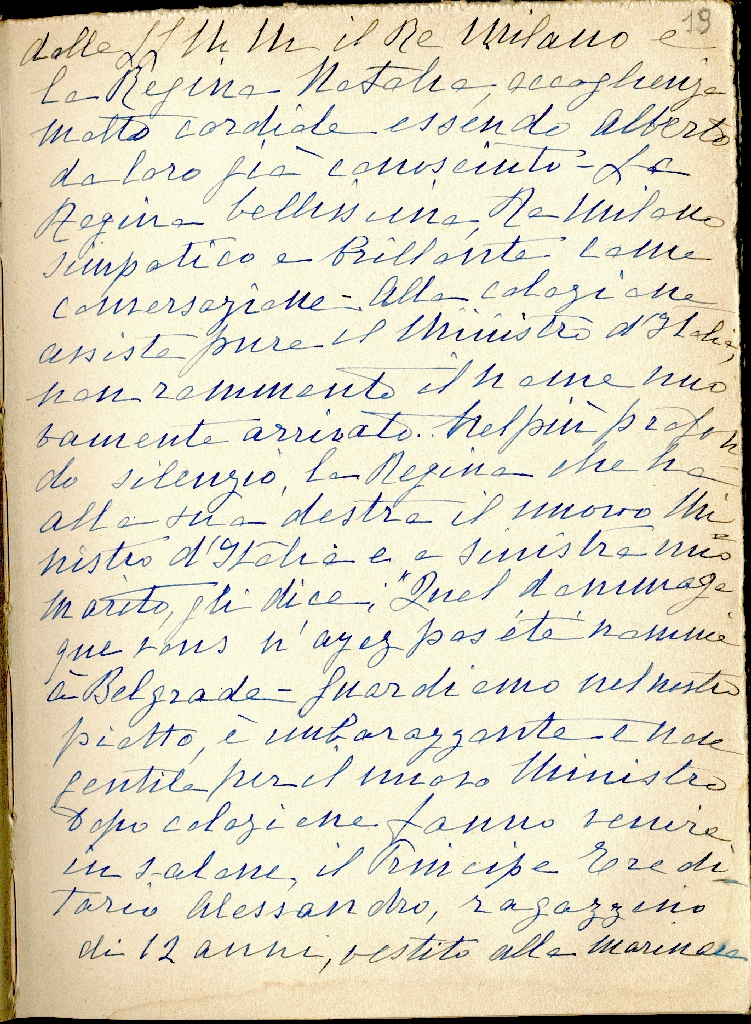 19
dalle LL MM il Re Milano e
la Regina Natalia, accoglienza
molto cordiale essendo Alberto
da loro già conosciuto - La
Regina bellissima, Re Milano
simpatico e brillante come
conversazione - Alla colazione
assiste pure il Ministro d'Italia,
non rammento il nome nuo
vamente arrivato. Nel più profon
do silenzio, la Regina che ha
alla sua destra il nuovo Mi
nistro d'Italia e a sinistra mio
marito, gli dice; "Quel dammage
que vous n'ayez pas été nommé
à Belgrade - Guardiamo nel nostro
piatto, è imbarazzante e non
gentile per il nuovo Ministro
Dopo colazione fanno venire
in salone, il Principe Eredi
tario Alessandro, ragazzino
di 12 anni, vestito alla marinara